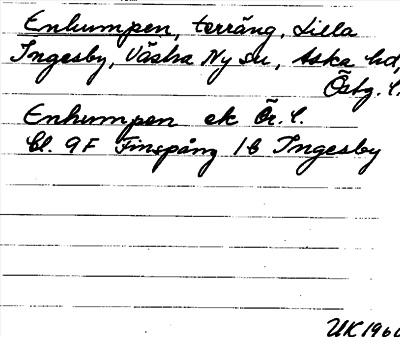 Enhumpen, terräng, Lilla
Ingesby, Västra Ny sn, Aska hd,
Östg. l.
Enhumpen ek Ör. l.
Bl. 9F Finspång 1b Ingesby
UK 1960